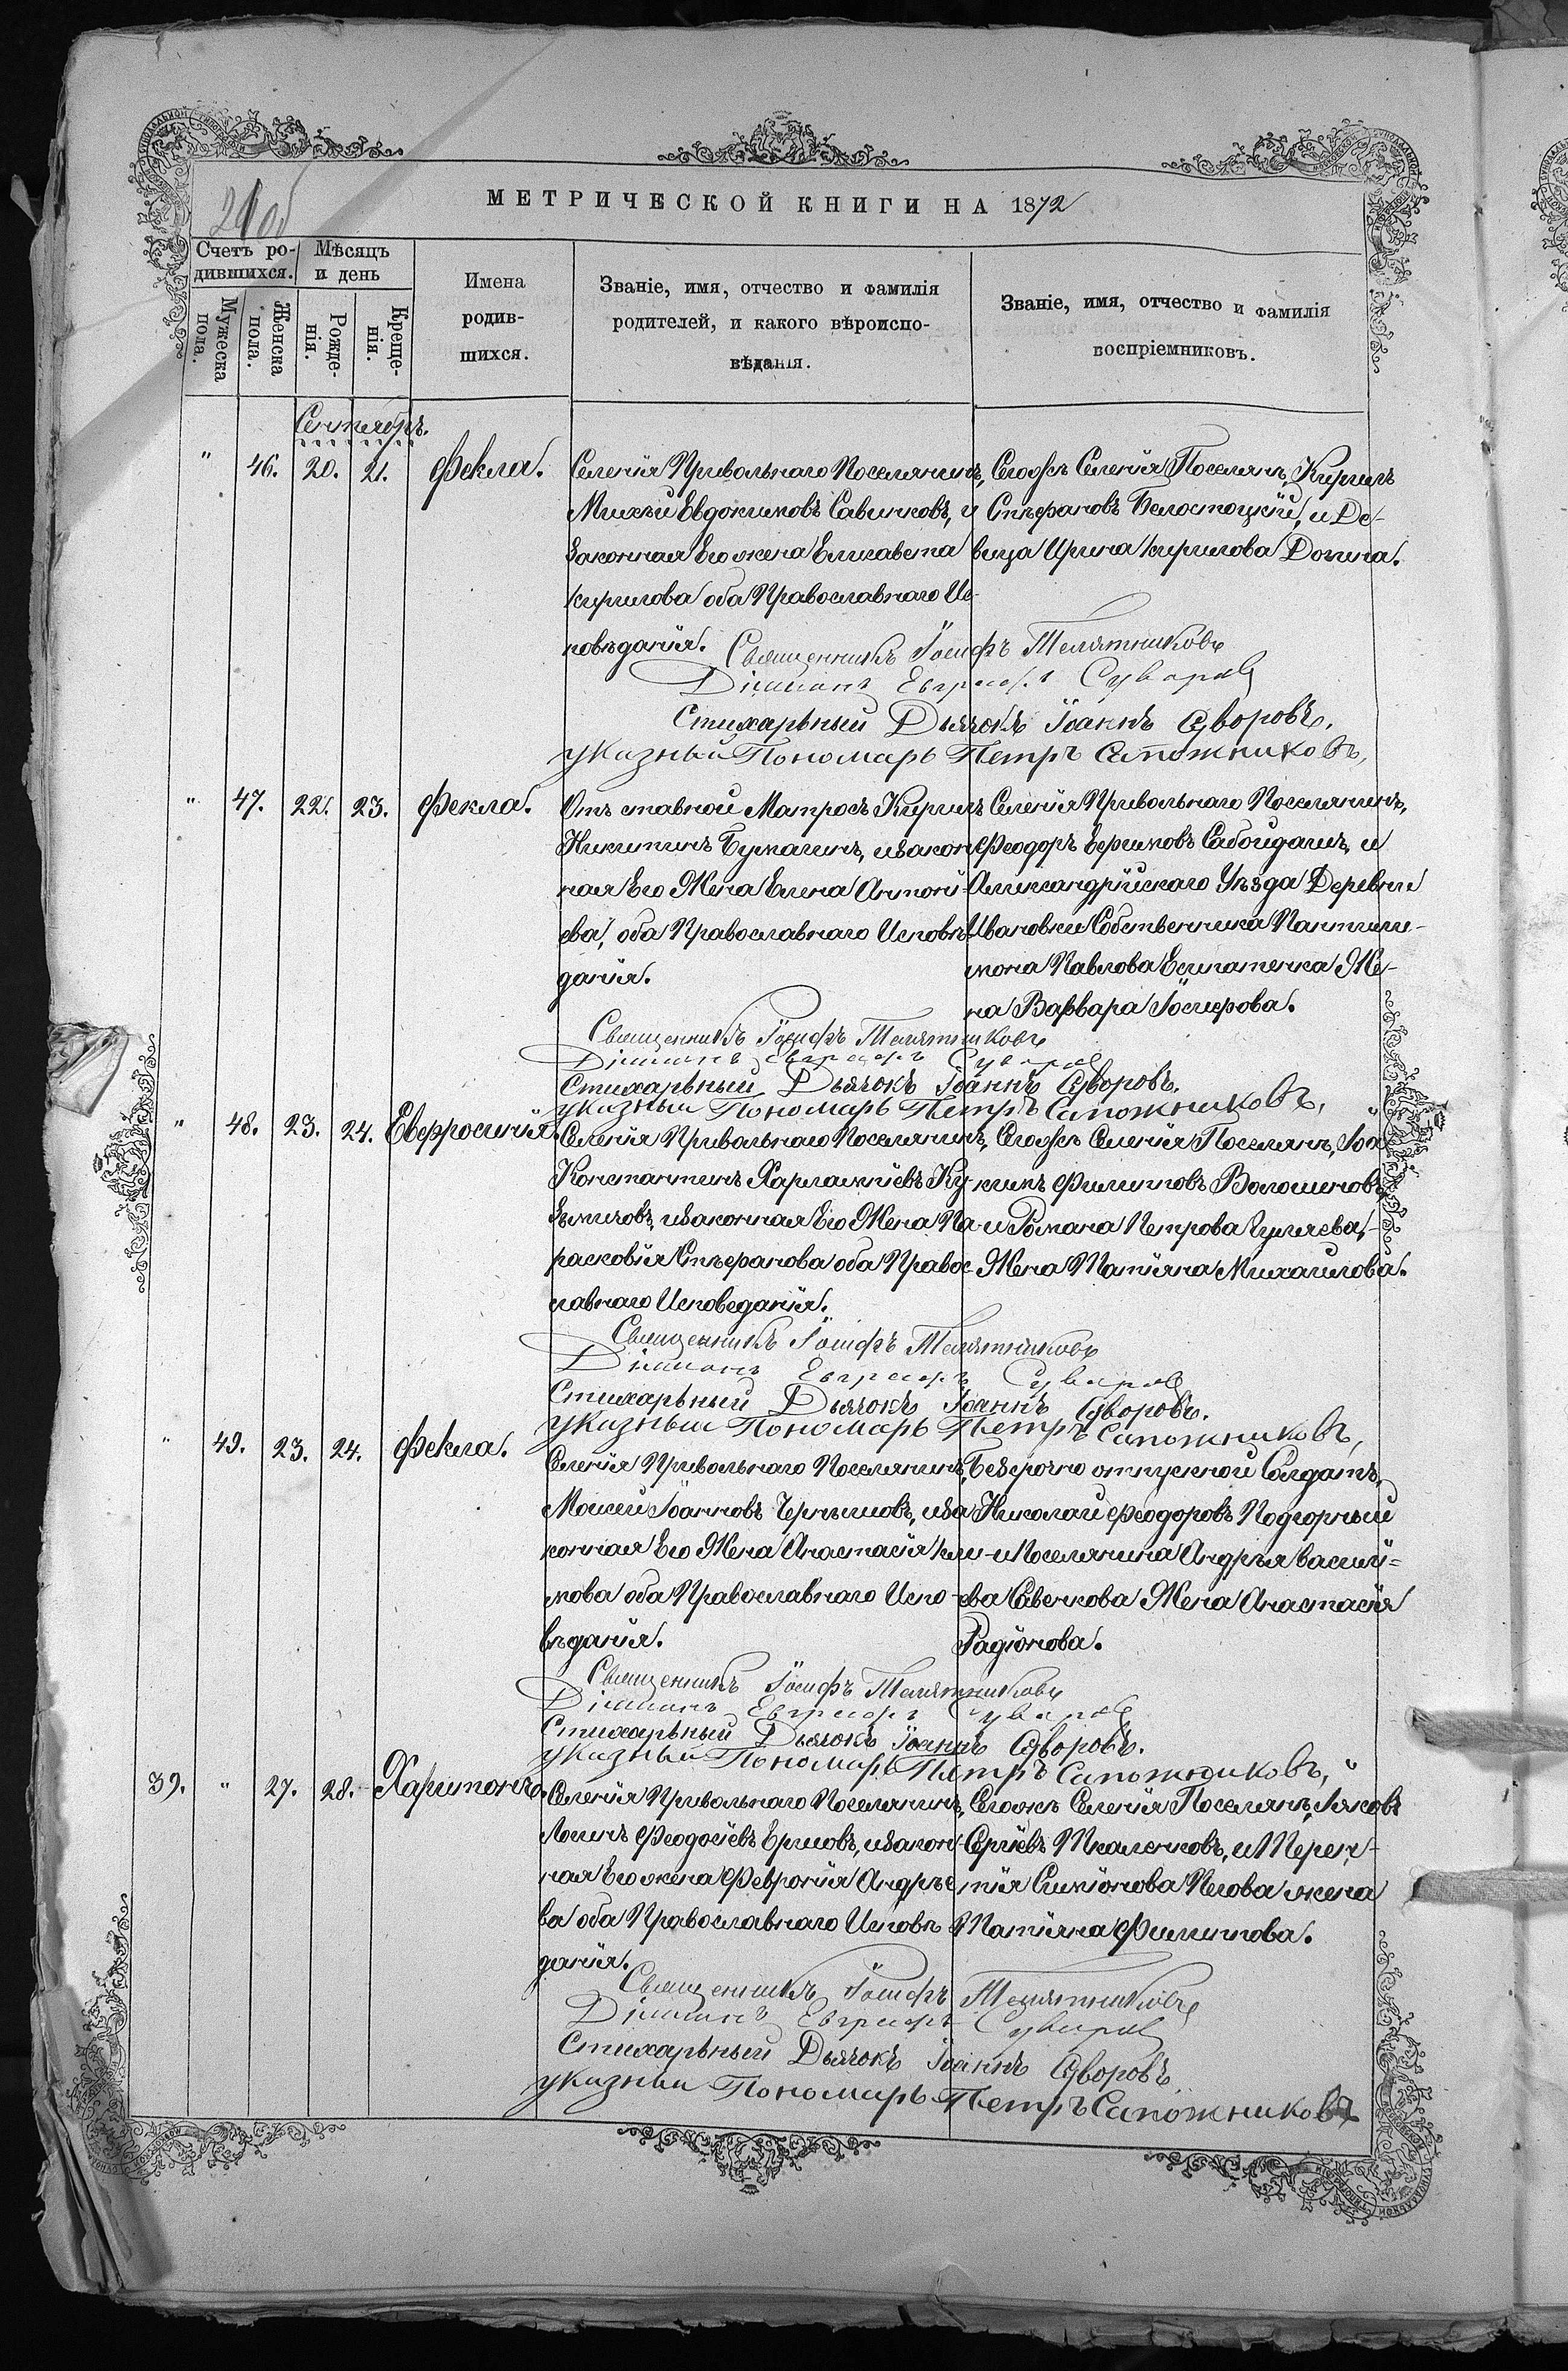 МЕТРИЧЕСКОЙ КНИГИ НА 1872
Счетъ ро-
дившихся.
Мѣсяцъ
и день
Мужеска
пола.
Женска
пола.
Рожде-
нія.
Креще-
нія.
Имена
родив-
шихся.
Званіе, имя, отчество и фамилія
родителей, и какого вѣроиспо-
вѣданія.
Званіе, имя, отчество и фамилія
воспріемниковъ.
Сентябрь.
" 46. 20. 21. Фекла.
Селенія Привольнаго Поселянинъ,
Михей Евдокимовъ Савинковъ, и
Законная Его жена Елисавета
Кирилова оба Православнаго Ис-
повѣданія.
Тогожъ Селенія Поселян., Кирилъ
Стефановъ Белостоцкій, и Де-
вица Ирина Кирилова Домина.
Священникъ Іосифъ Телятниковъ
Діаконъ Евграфъ Суворов
Стихарьный Дьячокъ Іоаннъ Суворовъ.
указный Пономарь Петръ Сапожниковъ,
" 47. 22. 23. Фекла.
Отъ ставной Матросъ Кирилъ
Никитинъ Бумагинъ, и закон
ная Его Жена Елена Антоні-
ева, оба Православнаго Исповѣ
данія.
Селенія Привольнаго Поселянинъ,
Феодоръ Ефимовъ и
Александрійскаго Уѣзда Деревни
Ивановки Собственника Пантили-
мона Павлова Же-
на Варвара
Священникъ Іосифъ Телятниковъ
Діаконъ Евграфъ Суворов
Стихарьный Дьячокъ Іоаннъ Суворовъ.
указный Пономарь Петръ Сапожниковъ,
" 48. 23. 24. Евфросинія.
Селенія Привольнаго Поселянинъ,
Константинъ Харлампіевъ Ку
зьмичовъ, и законная Его Жена Па
расковія Стефанова оба Правос-
лавнаго Исповеданія.
Тогожъ Селенія Поселян., Іоа
кимъ Филиповъ Волошиновъ,
и Романа Петрова Гуляева,
Жена Татіяна Михаилова.
Священникъ Іосифъ Телятниковъ
Діаконъ Евграфъ Суворов
Стихарьный Дьячокъ Іоаннъ Суворовъ.
указный Пономарь Петръ Сапожниковъ,
" 49. 23. 24. Фекла.
Селенія Привольнаго Поселянинъ,
Моисей Іоанновъ Чернышовъ, и за
конная Его Жена Анастасія Кли-
мова оба Православнаго Испо-
вѣданія.
Безсрочно отпускной Солдатъ,
Николай Феодоровъ Подгорный
и Поселянина Андрея Василі-
ева Савенкова Жена Анастасія
Радіонова.
Священникъ Іосифъ Телятниковъ
Діаконъ Евграфъ Суворов
Стихарьный Дьячокъ Іоаннъ Суворовъ.
указный Пономарь Петръ Сапожниковъ,
39. " 27. 28. Харитонъ.
Селенія Привольнаго Поселянинъ,
Логинъ Феодосіевъ Ершовъ, и закон-
ная Его жена Феврония Андрѣе
ва оба Православнаго Исповѣ
данія.
Тогожъ Селенія Поселян., Іяковъ
Сергіевъ Ткаленковъ, и Терен-
тія Симіонова Пегова жена
Татіяна Филипова.
Священникъ Іосифъ Телятниковъ
Діаконъ Евграфъ Суворов
Стихарьный Дьячокъ Іоаннъ Суворовъ.
указный Пономарь Петръ Сапожниковъ